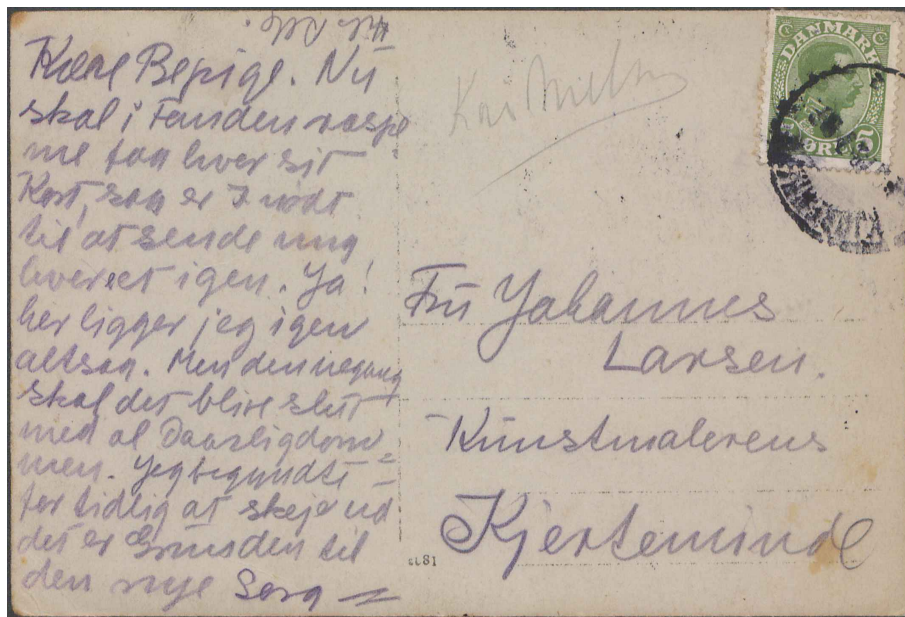 Kære Bepige. Nu
skal i Fanden raspe
me faa hver sit
Kort, saa er I nødt
til at sende mig
hveret igen. Ja!
her ligger jeg igen
altsaa. Men dennegang
skal det blive slut
med al Daarligdom=
men. Jeg begyndte
for tidlig at skeje ud
det er Grunden til
den nye Sorg
DANMARK
5 ØRE
Fru Johannes
Larsen.
Kunstmalerens
Kjerteminde